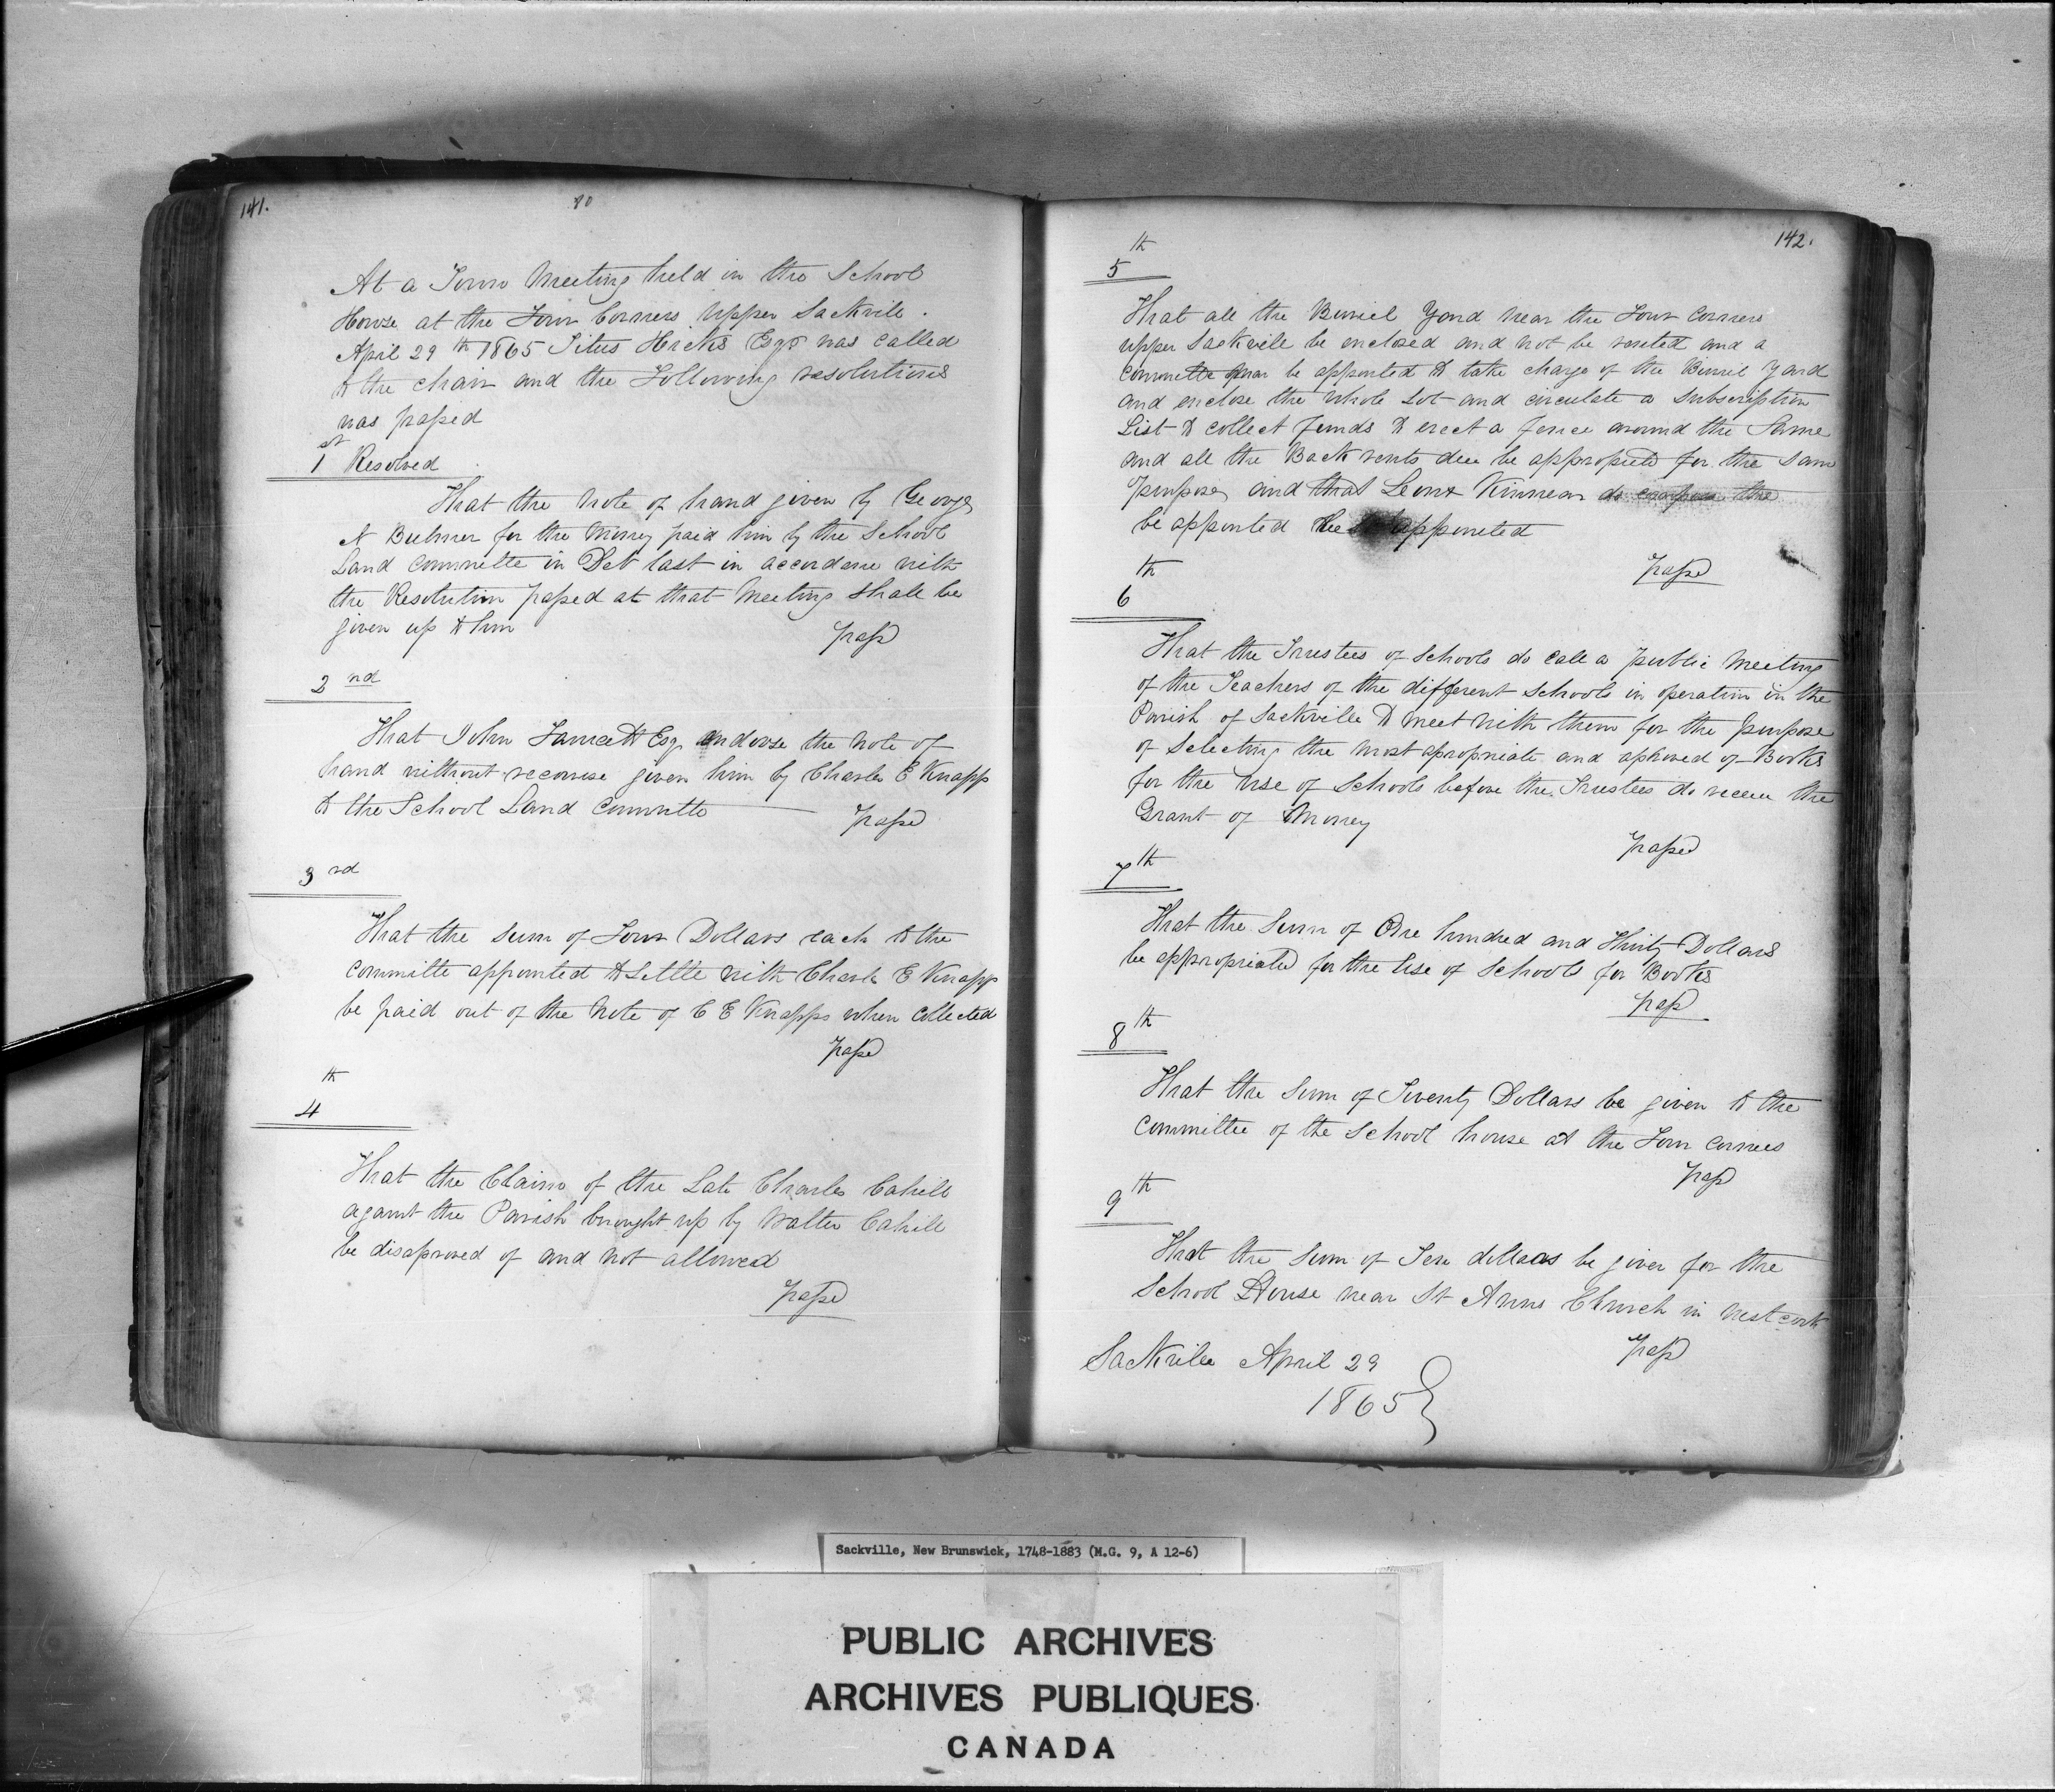 141.
80
At a Town Meeting held in the School
House at the Four Corners Upper Sackvile.
April 29th 1865 Titus Hicks Esqr was called
to the chair and the Following resolutions
was passed
1st Resolved
That the Note of hand given by George
N Bulmer for the Money paid him by the School
Land Committe in Det last in accordane with
the Resolution passed at that Meeting shall be
given up to him
passd
2nd
That John Fawcett Esq endorse the Note of
hand without recourse given him by Charles E Knapp
to the School Land Committe
passd
3rd
That the Sum of Four Dollars each to the
Committe appointed to Settle with Charls E Knapp
be paid out of the Note of C E Knapps when Collected
passd
4th
That the Claim of the Late Charles Cahill
against the Parish brought up by Walter Cahill
be disaproved of and Not allowed
passd
142.
5th
That all the Buriel Yard Near the Four Corners
upper Sackvile be enclosed and not be rented and a
Committe be appointed to take charge of the Buriel Yard
and enclose the whole Lot and circulate a Subscription
List to collect funds to erect a fence around the Same
and all the Back rents due be appropiated for the Same
purpose, and that Kinnear the
be appointed appointed
passd
6th
That the Trustees of Schools do call a public Meeting
of the Teachers of the different Schools in operation in the
Parish of Sackville to meet with them for the purpose
of Selecting the most apropriate and aproved of Books
for the use of Schools before the Trustees do receve the
Grant of Money
passed
7th
That the Sum of One hundred and Thirty Dollars
be appropriated for the use of Schools for Books
passd
8th
That the Sum of Twenty Dollars be given to the
Committee of the School house at the Four Corners
passd
9th
That the Sum of Ten dollars be given for the
School House near St Anns Church in Westcock
passd
Sackvile April 29
1865
Sackville, New Brunswick, 1748-1883 (M.G. 9, A 12-6)
PUBLIC ARCHIVES
ARCHIVES PUBLIQUES
CANADA